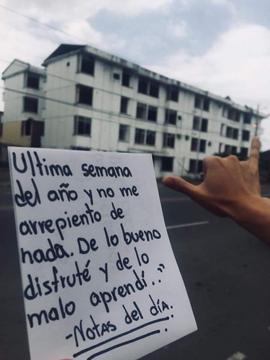 Ultima semana
del año y no me
arrepiento de
nada. De lo bueno
disfruté y de lo
malo aprendí..”
-Notas del día.